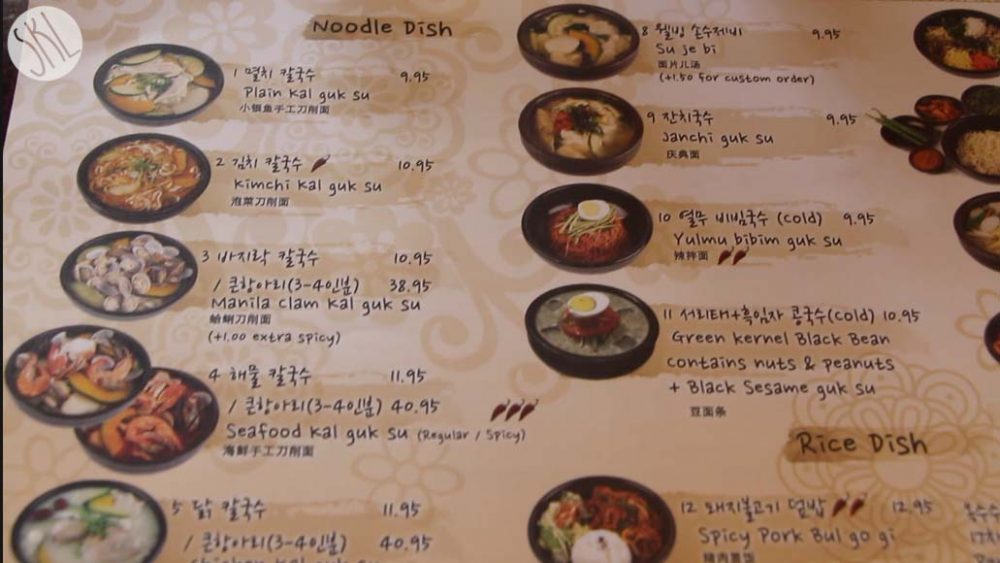 SKL
Noodle Dish
1 멸치 칼국수 9.95
Plain kal guk su
小银鱼手工刀削面
2 김치 칼국수 10.95
Kimchi kal guk su
泡菜刀削面
3 바지락 칼국수 10.95
/ 큰항아리(3-4인분) 38.95
Manila clam kal guk su
蛤蜊刀削面
(+1.00 extra spicy)
4 해물 칼국수 11.95
/ 큰항아리(3-4인분) 40.95
Seafood kal guk su (Regular / Spicy)
海鲜手工刀削面
5 닭 칼국수 11.95
/ 큰항아리(3-4인분) 40.95
8 웰빙 손수제비 9.95
Su je bi
面片儿汤
(+1.50 for custom order)
9 잔치국수 9.95
Janchi guk su
庆典面
10 열무 비빔국수 (cold) 9.95
Yulmu bibim guk su
辣拌面
11 서리태+흑임자 콩국수(cold) 10.95
Green kernel Black Bean
contains nuts & peanuts
+ Black Sesame guk su
豆面条
Rice Dish
12 돼지불고기 덮밥 12.95
Spicy Pork Bul go gi